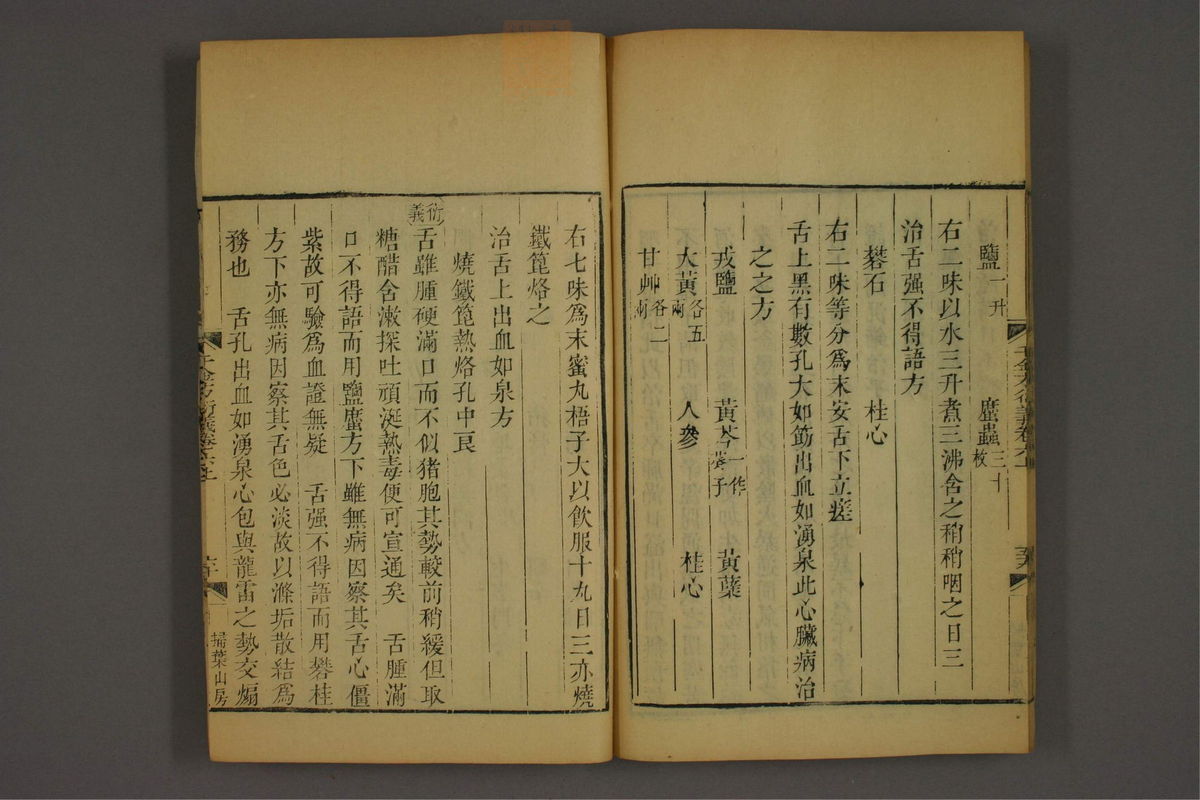 鹽一升　䗪蟲三十枚
右二味以水三升煮三沸含之稍稍咽之日三
治舌强不得語方
礬石　桂心
右二味等分爲末安舌下立瘥
舌上黑有數孔大如筯出血如湧泉此心臟病治
之之方
戎鹽　黃芩一作葵子　黃蘗
大黃各五兩　人參　桂心
甘艸各二兩
右七味爲末蜜丸梧子大以飮服十丸日三亦燒
鐵篦烙之
治舌上出血如泉方
燒鐵篦熱烙孔中良
衍義
舌雖腫硬滿口而不似猪胞其勢較前稍緩但取
糖醋含漱探吐頑涎熱毒便可宣通矣　舌腫滿
口不得語而用鹽䗪方下雖無病因察其舌心僵
紫故可驗爲血證無疑　舌强不得語而用礬桂
方下亦無病因察其舌色必淡故以滌垢散結爲
務也　舌孔出血如湧泉心包與龍雷之勢交煽
掃葉山房